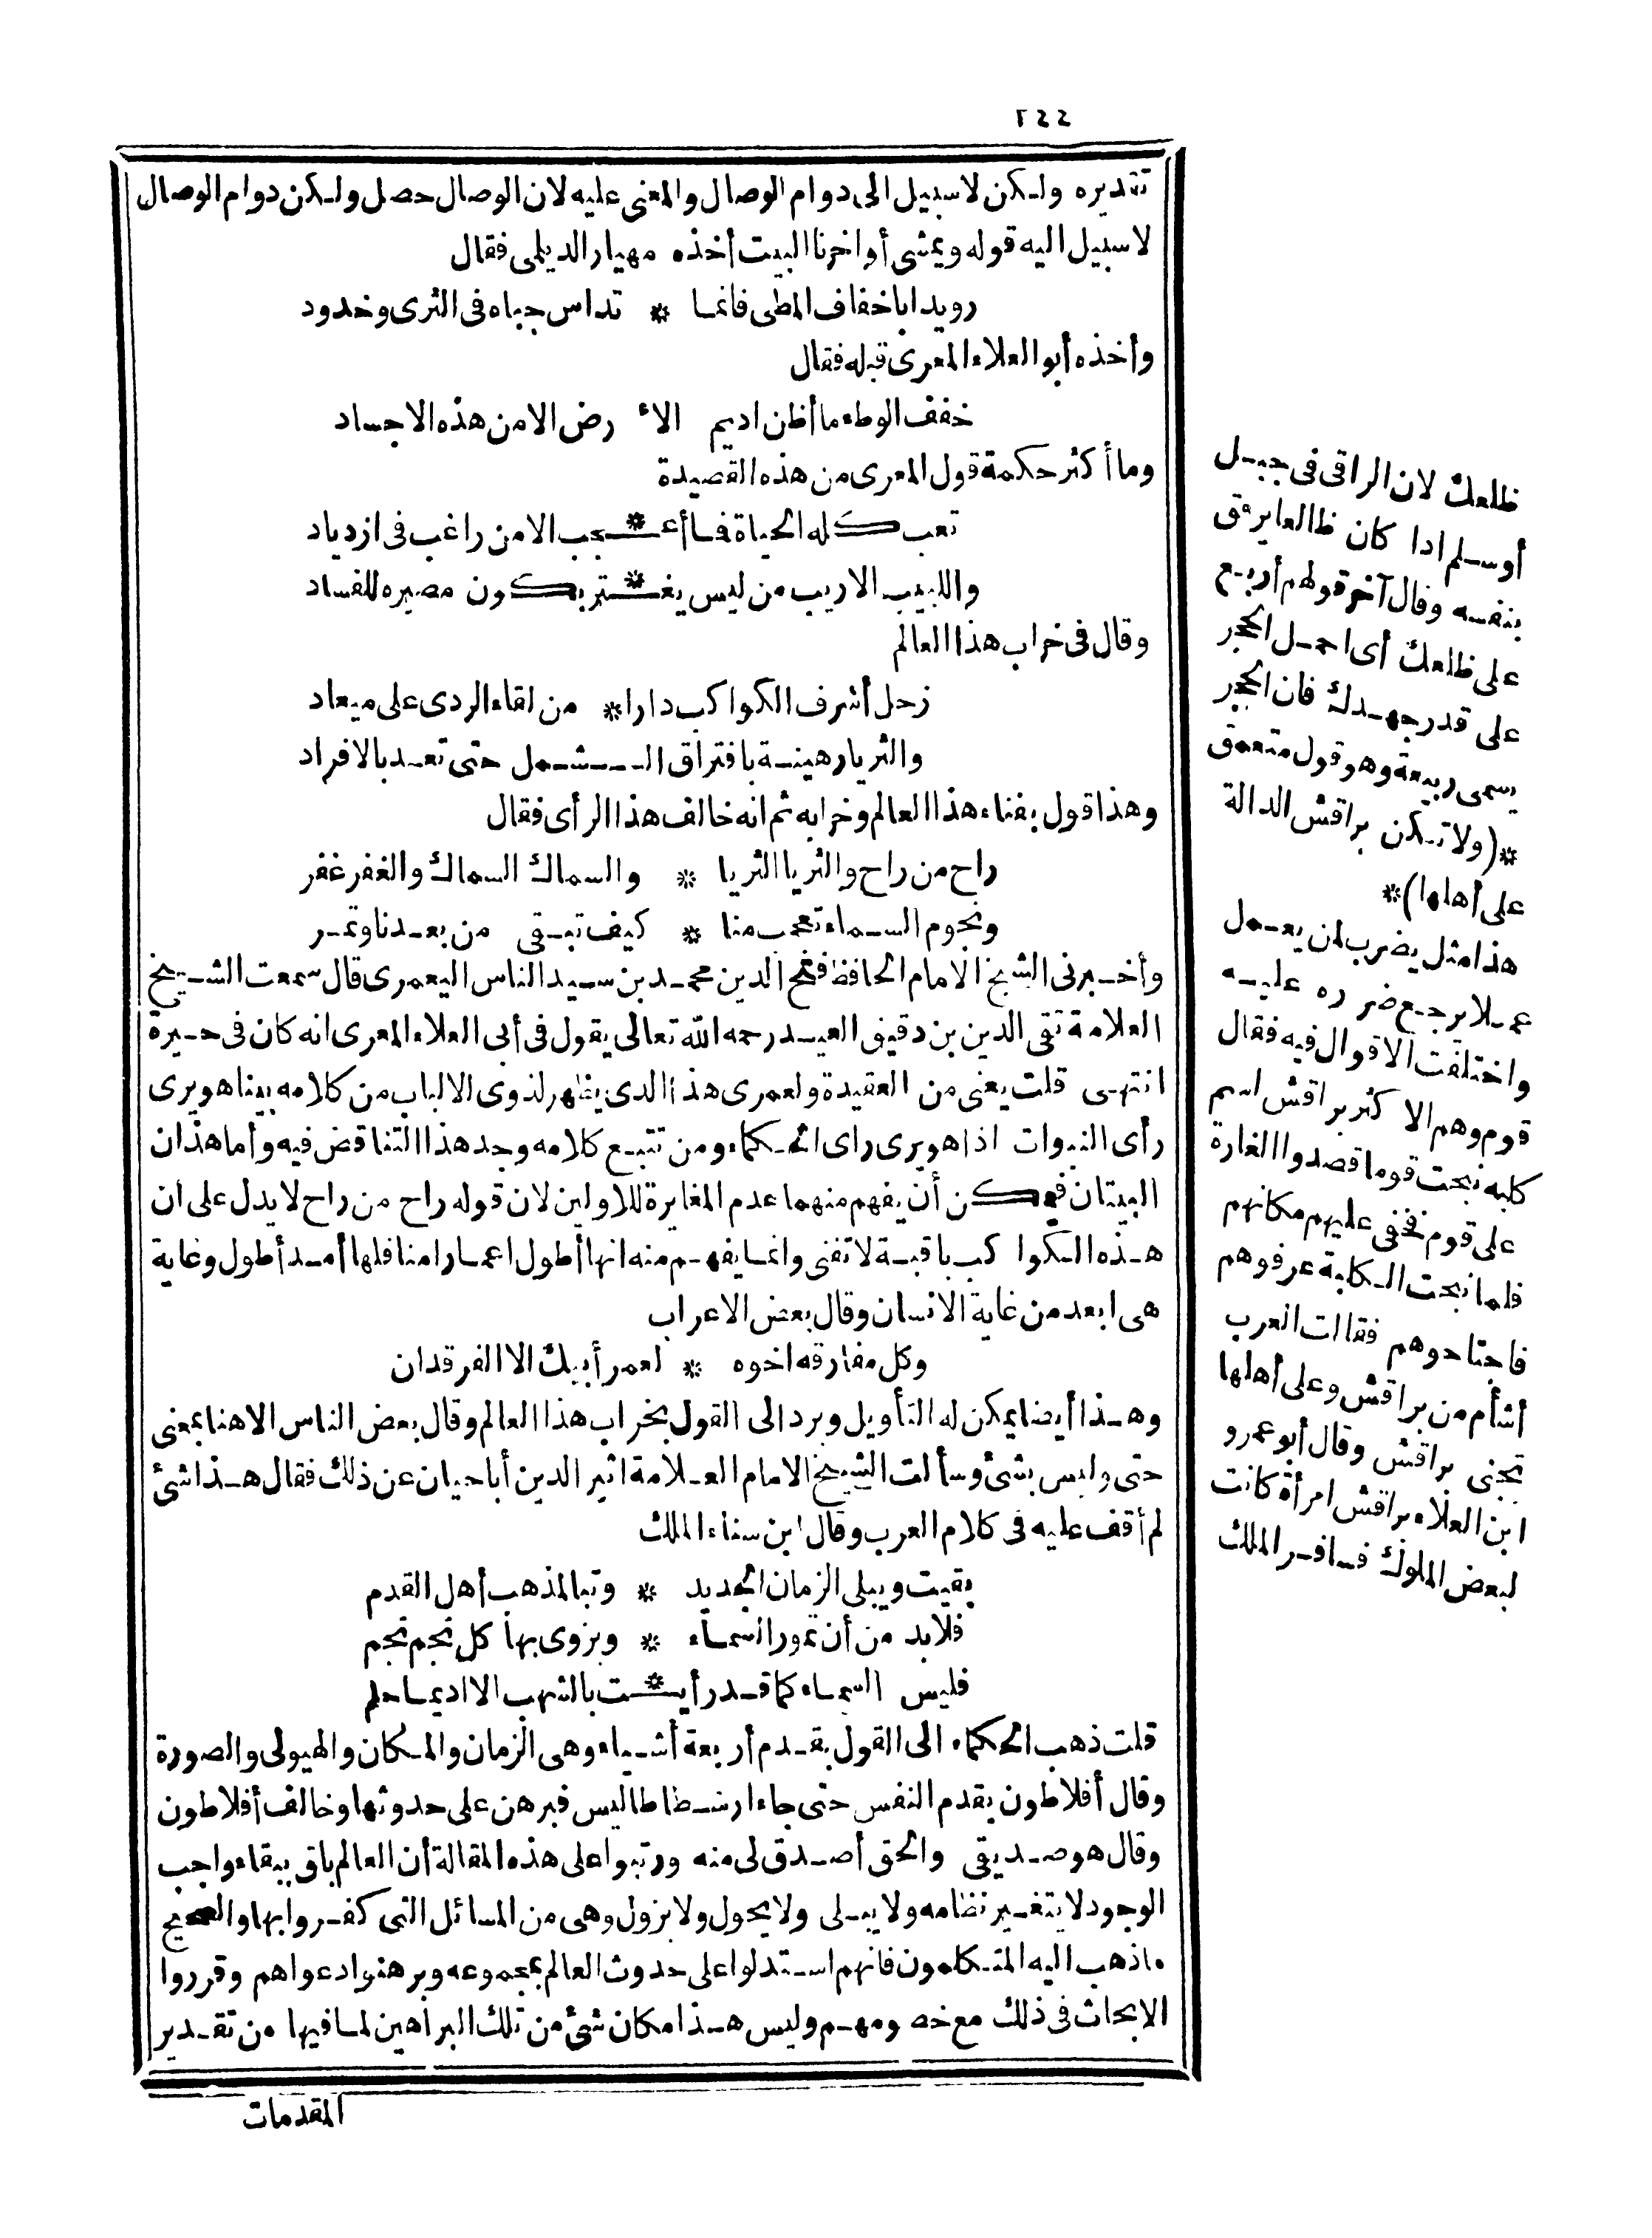 ٤٤٦
تقديره ولكن لا سبيل الى دوام الوصال والمعنى عليه لان الوصال حصل ولكن دوام الوصال
لا سبيل اليه قوله ويمشى أواخرنا البيت أخذه مهيار الديلمى فقال
رويدا باخفاف المطى فانما * تداس جباه فى الثرى وخدود
وأخذه أبو العلاء المعرى قبله فقال
خفف الوطء ما أظن اديم الأ رض الا من هذه الاجساد
وما أكثر حكمة قول المعرى من هذه القصيدة
تعب كله الحياة فما أعـ * ـجب الا من راغب فى ازدياد
واللبيب الاريب من ليس يغـ * ـتر بكون مصيره للفساد
وقال فى خراب هذا العالم
زحل أشرف الكواكب دارا * من لقاء الردى على ميعاد
والثريا رهينة بافتراق الـ ـشمل حتى تعد بالافراد
وهذا قول بفناء هذا العالم وخرابه ثم انه خالف هذا الرأى فقال
راح من راح والثريا الثريا * والسماك السماك والغفر غفر
ونجوم السماء تعجب منا * كيف تبقى من بعدنا وتمر
وأخبرنى الشيخ الامام الحافظ فتح الدين محمد بن سيد الناس اليعمرى قال سمعت الشيخ
العلامة تقى الدين بن دقيق العيد رحمه الله تعالى يقول فى أبى العلاء المعرى انه كان فى حيرة
انتهى قلت يعنى من العقيدة ولعمرى هذا الذى يظهر لذوى الالباب من كلامه بينا هو يرى
رأى النبوات اذا هو يرى راى الحكماء ومن تتبع كلامه وجد هذا التناقض فيه وأما هذان
البيتان فيمكن أن يفهم منهما عدم المغايرة للاولين لان قوله راح من راح لا يدل على ان
هذه الكواكب باقية لا تفنى وانما يفهم منه انها أطول اعمارا منا فلها أمد أطول وغاية
هى ابعد من غاية الانسان وقال بعض الاعراب
وكل مفارقه اخوه * لعمر أبيك الا الفرقدان
وهذا أيضا يمكن له التأويل ويرد الى القول بخراب هذا العالم وقال بعض الناس الا هنا بمعنى
حتى وليس بشئ وسألت الشيخ الامام العلامة اثير الدين أبا حيان عن ذلك فقال هذا شئ
لم أقف عليه فى كلام العرب وقال ابن سناء الملك
بقيت ويبلى الزمان الجديد * وتبا لمذهب أهل القدم
فلا بد من أن تمور السماء * ويزوى بها كل نجم نجم
فليس السماء كما قد رأيـ * ـت بالشهب الا اديما حلم
قلت ذهب الحكماء الى القول بقدم أربعة أشياء وهى الزمان والمكان والهيولى والصورة
وقال أفلاطون بقدم النفس حتى جاء ارسطاطاليس فبرهن على حدوثها وخالف أفلاطون
وقال هو صديقى والحق أصدق لى منه ورتبوا على هذه المقالة أن العالم باق ببقاء واجب
الوجود لا يتغير نظامه ولا يبلى ولا يحول ولا يزول وهى من المسائل التى كفروا بها والصحيح
ما ذهب اليه المتكلمون فانهم استدلوا على حدوث العالم بمجموعه وبرهنوا دعواهم وقرروا
الابحاث فى ذلك مع خصومهم وليس هذا مكان شئ من تلك البراهين لما فيها من تقدير
المقدمات
ظلعك لان الراقى فى جبل
أو سلم اذا كان ظالعا يرفق
بنفسه وقال آخر قولهم أربع
على ظلعك أى احمل الحجر
على قدر جهدك فان الحجر
يسمى ربيعة وهو قول متعمق
*(ولا تكن براقش الدالة
على أهلها)*
هذا مثل يضرب لمن يعمل
عملا يرجع ضرره عليه
واختلفت الاقوال فيه فقال
قوم وهم الاكثر براقش اسم
كلبه نبحت قوما قصدوا الغارة
على قوم فخفى عليهم مكانهم
فلما نبحت الكلبة عرفوهم
فاجتاحوهم فقالت العرب
أشأم من براقش وعلى أهلها
تجنى براقش وقال أبو عمرو
ابن العلاء براقش امرأة كانت
لبعض الملوك فسافر الملك